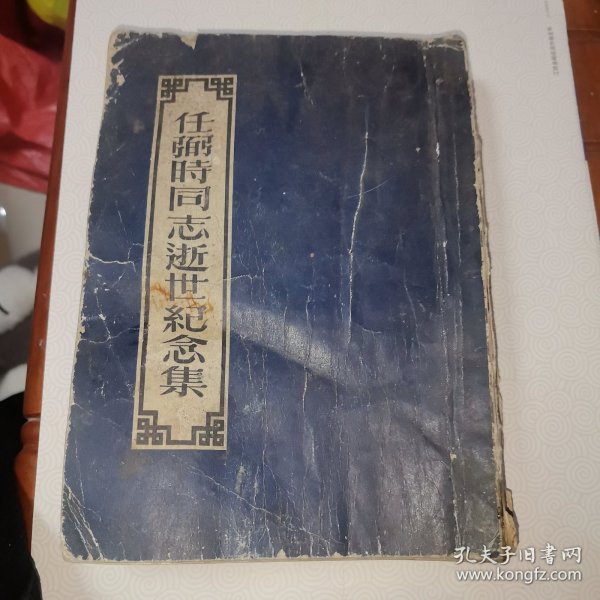 任弼時同志逝世紀念集
孔夫子旧書网
www.kongfz.com